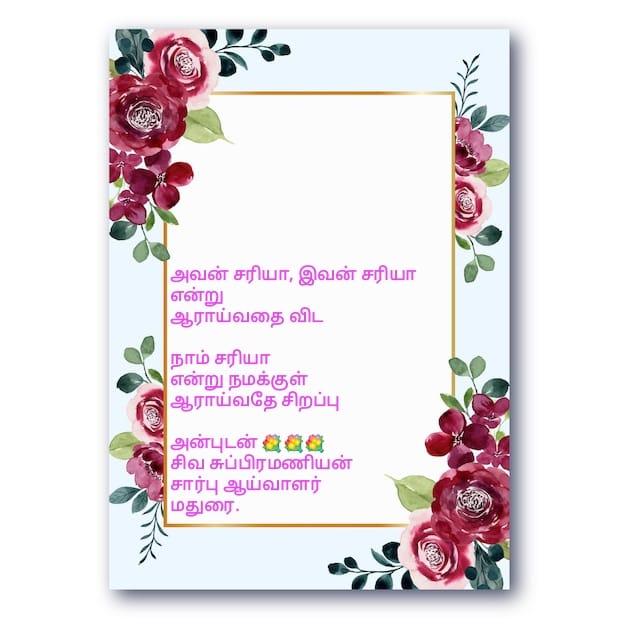 அவன் சரியா, இவன் சரியா
என்று
ஆராய்வதை விட
நாம் சரியா
என்று நமக்குள்
ஆராய்வதே சிறப்பு
அன்புடன் 💐💐💐
சிவ சுப்பிரமணியன்
சார்பு ஆய்வாளர்
மதுரை.